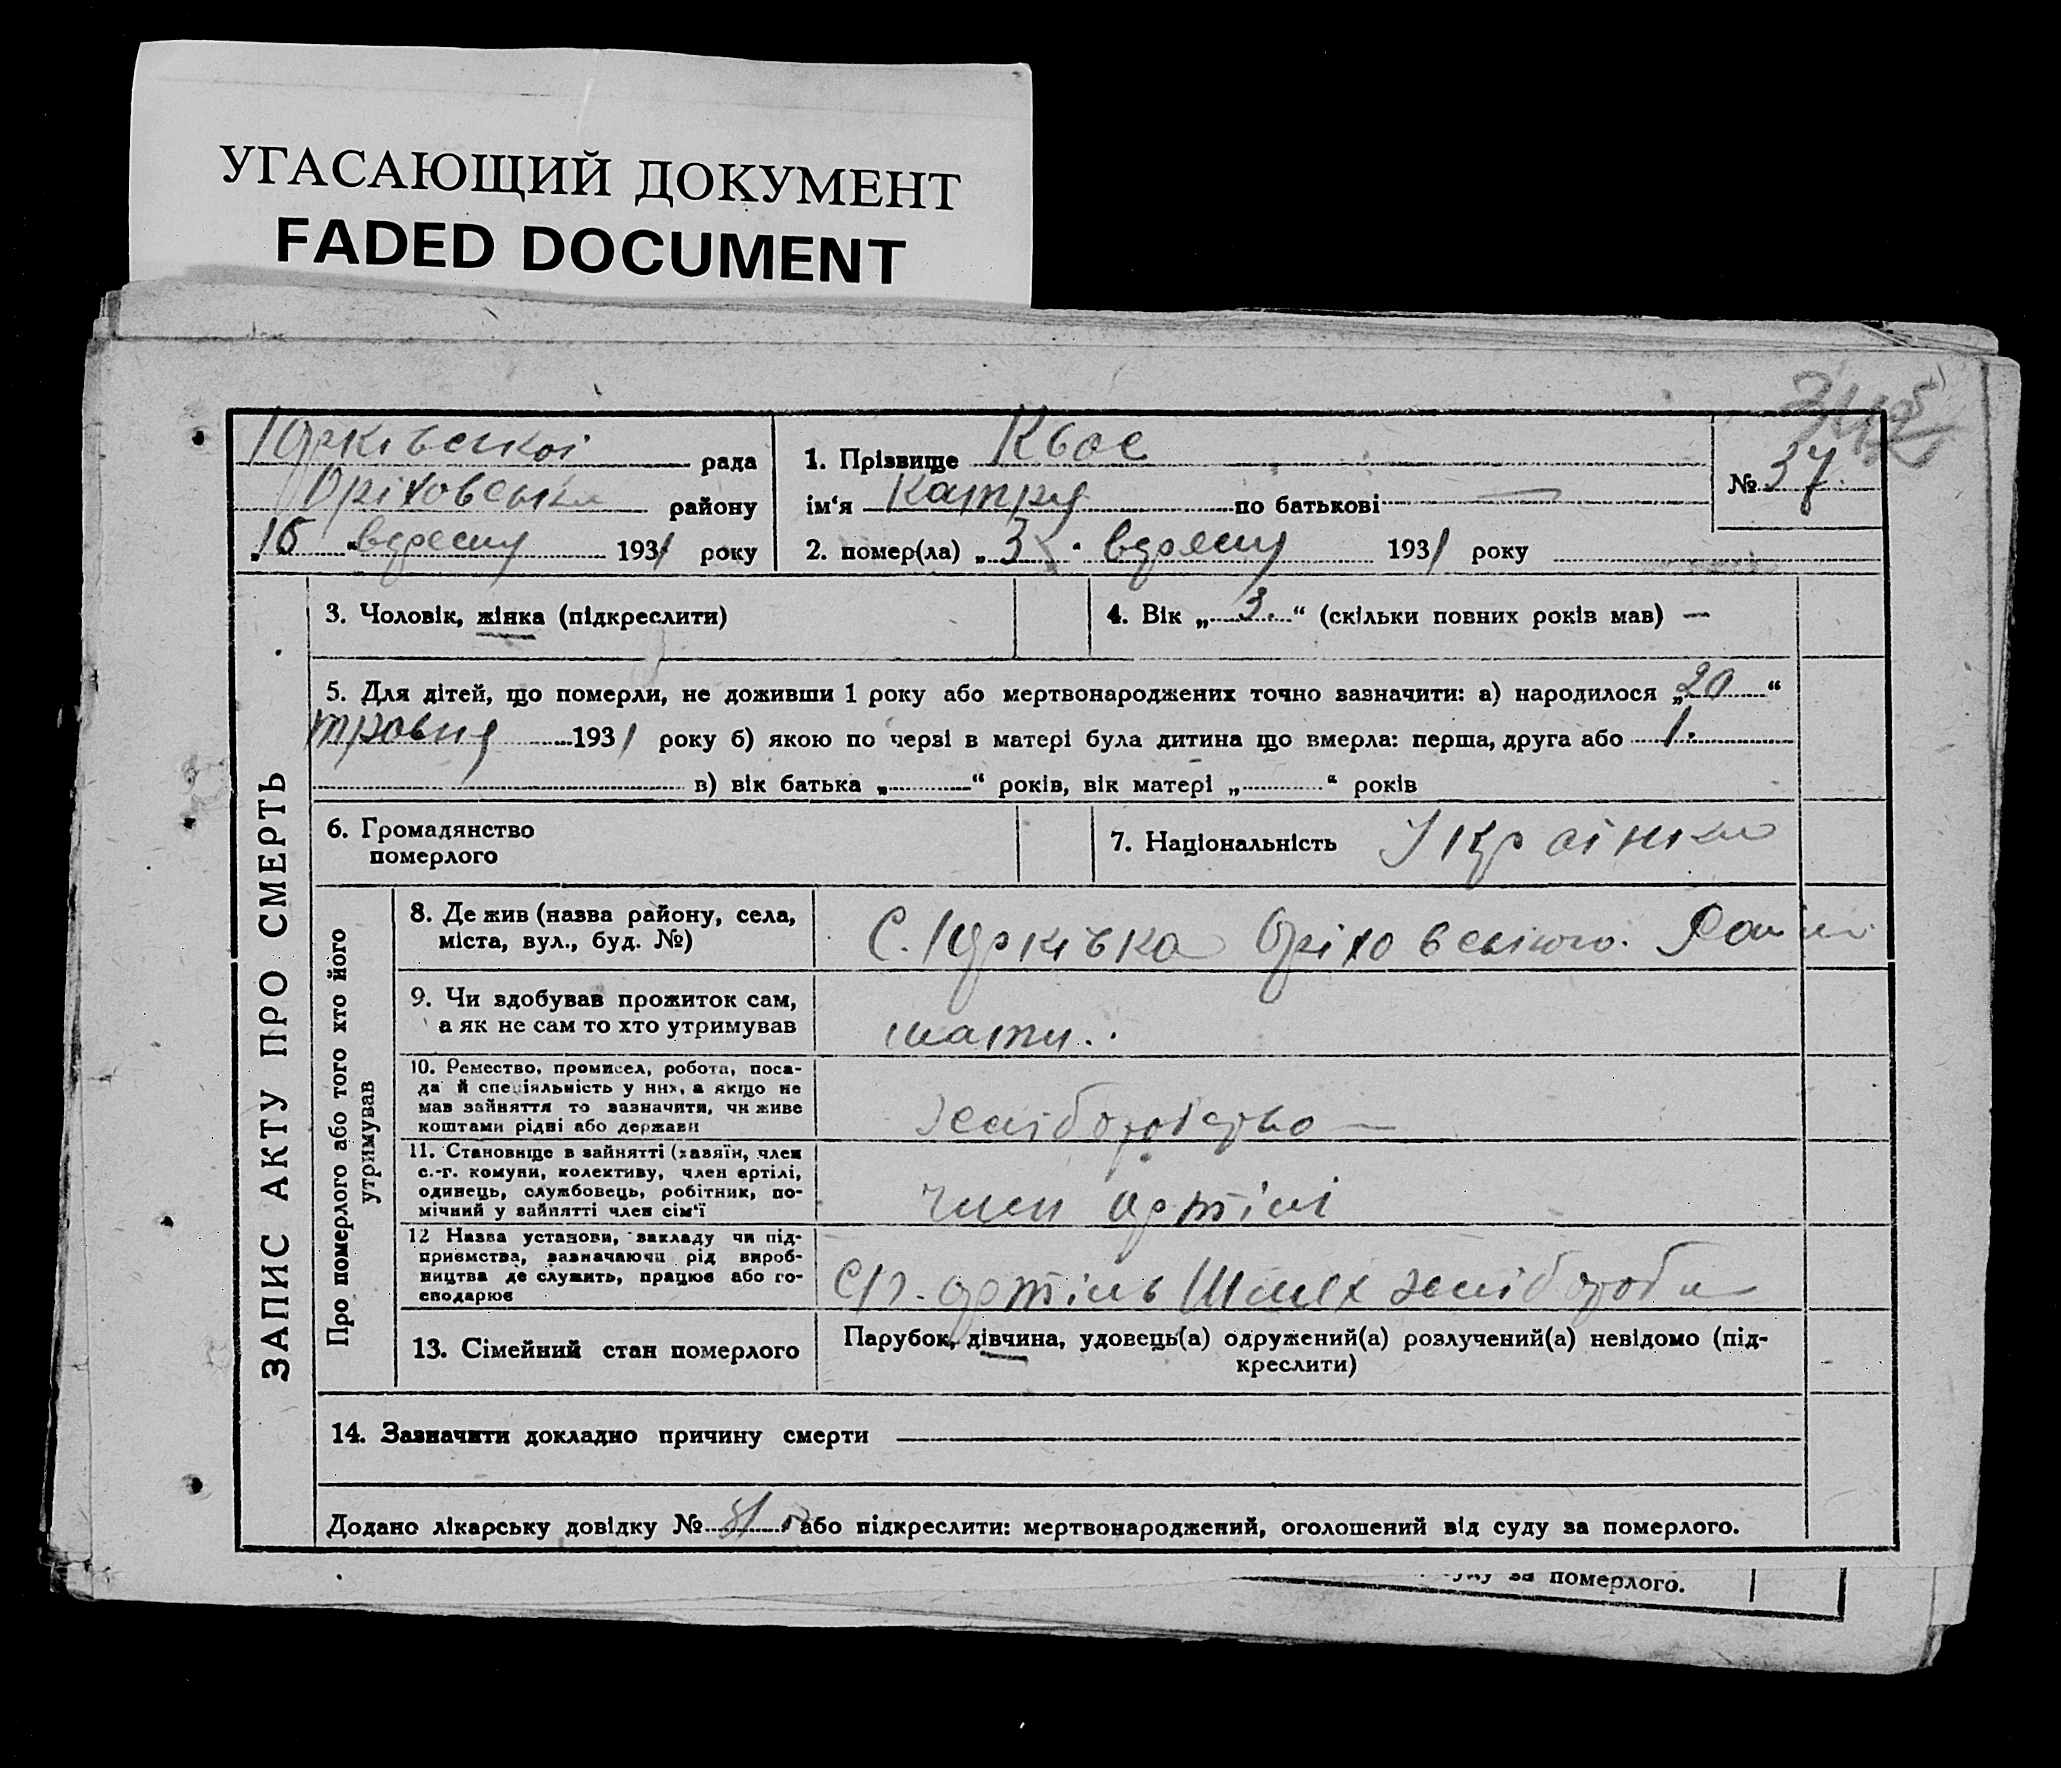 УГАСАЮЩИЙ ДОКУМЕНТ
FADED DOCUMENT
Юрківської рада
Оріховськ району
„16“ вересня 1931 року
1. Прізвище Квас
ім‘я Катря по батькові —
2. помер(ла) „3“ вересня 1931 року
№ 37
ЗАПИС АКТУ ПРО СМЕРТЬ
3. Чоловік, жінка (підкреслити)
4. Вік „3.“ (скільки повних років мав) —
5. Для дітей, що померли, не доживши 1 року або мертвонароджених точно зазначити: а) народилося „20“
травня 1931 року б) якою по черзі в матері була дитина що вмерла: перша, друга або 1.
в) вік батька „“ років, вік матері „“ років
6. Громадянство
померлого
7. Національність Українка
Про померлого або того хто його
утримував
8. Де жив (назва району, села,
міста, вул., буд. №)
С. Юрківка Оріховського
9. Чи здобував прожиток сам,
а як не сам то хто утримував
мати.
10. Ремество, промисел, робота, поса-
да й спеціяльність у них, а якщо не
мав зайняття то зазначити, чи живе
коштами рідні або держави
хліборобство —
11. Становище в зайнятті (хазяїн, член
с.-г. комуни, колективу, член артілі,
одинець, службовець, робітник, по-
мічний у зайнятті член сім‘ї
член артілі
12 Назва установи, закладу чи під-
приємства, зазначаючи рід вироб-
ництва де служить, працює або го-
сподарює
артіль Шлях хлібороба
13. Сімейний стан померлого
Парубок, дівчина, удовець(а) одружений(а) розлучений(а) невідомо (під-
креслити)
14. Зазначити докладно причину смерти
Додано лікарську довідку № або підкреслити: мертвонароджений, оголошений від суду за померлого.
за померлого.